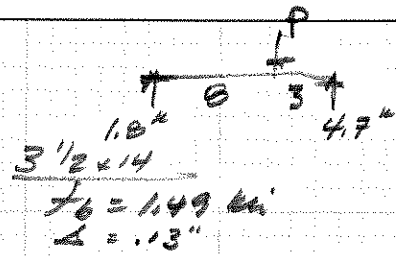 P
8 3
1.8ᵏ 4.7ᵏ
3 1/2 x 14
fb = 1.49 ksi
Δ = .13"